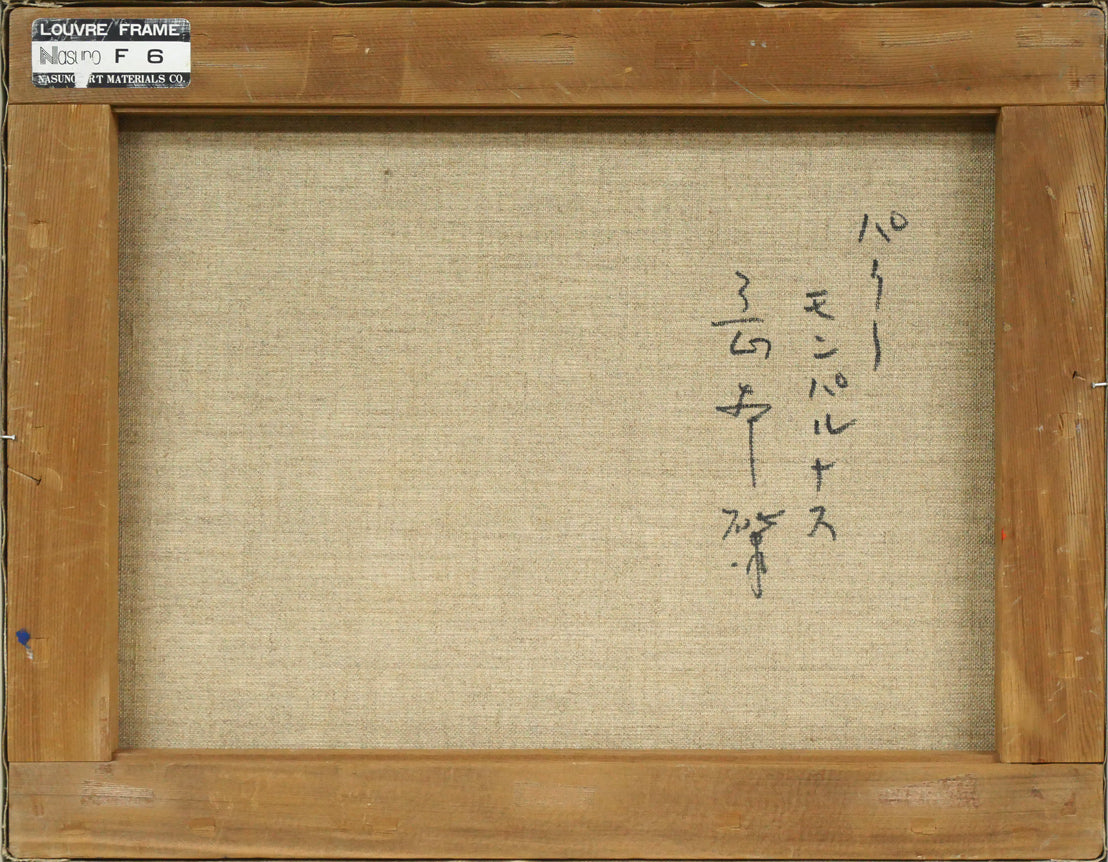 LOUVRE FRAME
Nasuno F 6
NASUNO ART MATERIALS CO.
パリー
モンパルナス